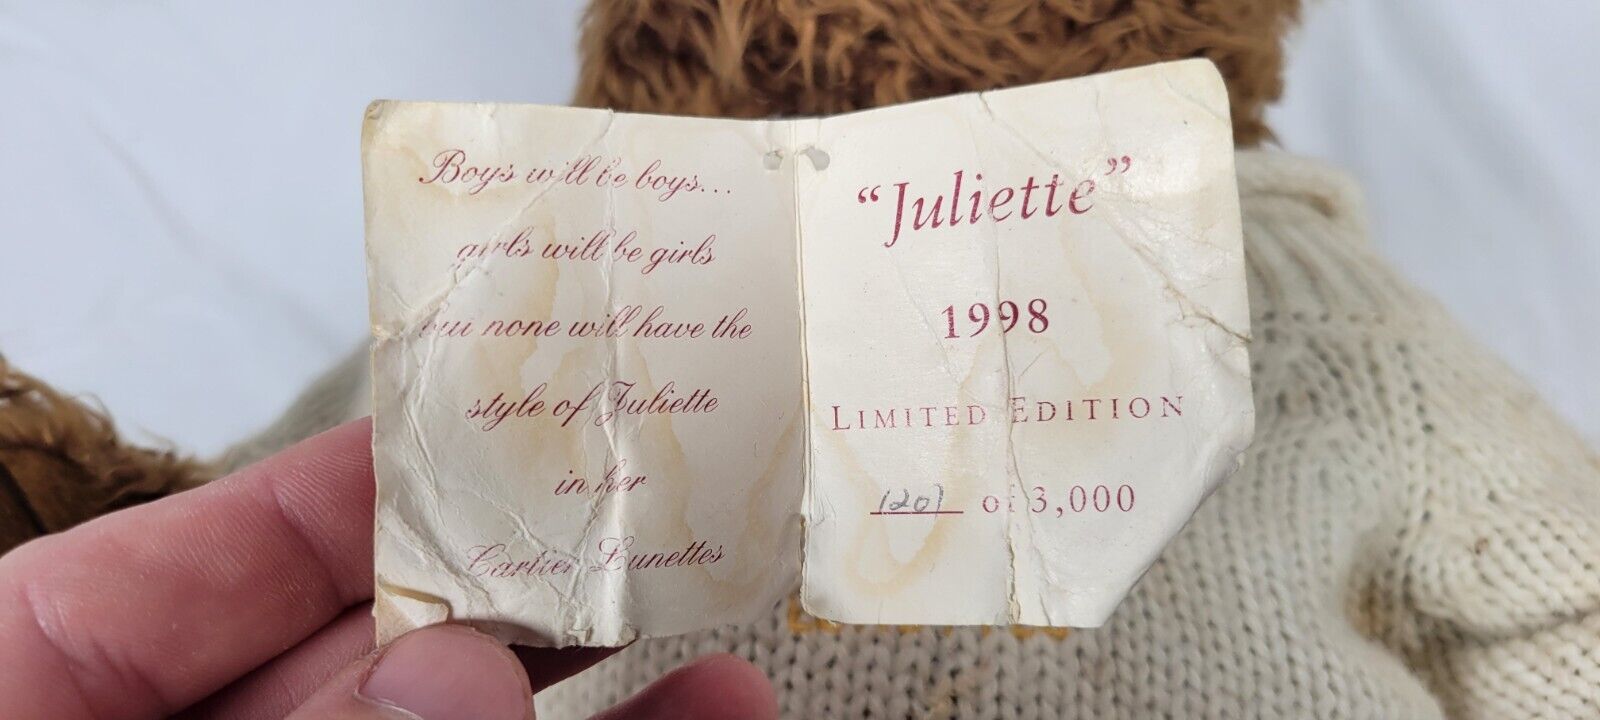 Boys will be boys...
girls will be girls
but none will have the
style of Juliette
in her
Cartier Lunettes
“Juliette”
1998
LIMITED EDITION
1207 of 3,000